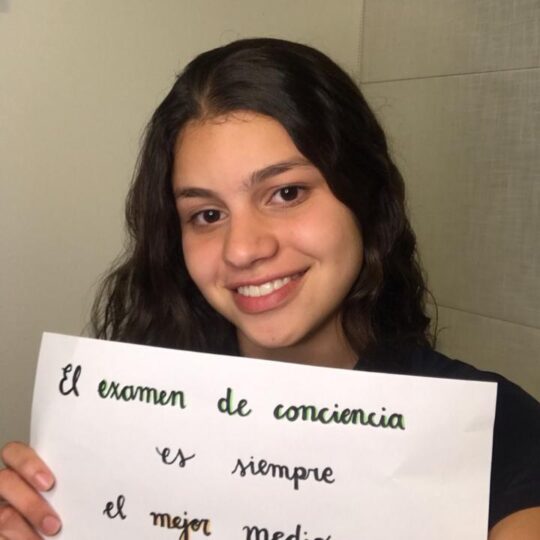 El examen de conciencia
es siempre
el mejor medio